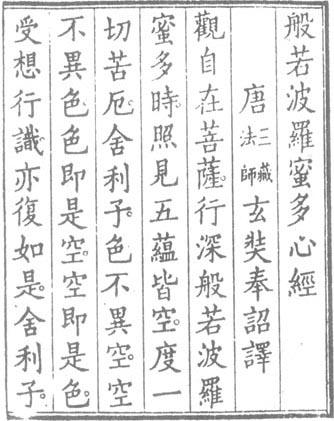 般若波羅蜜多心經
唐三藏法師玄奘奉詔譯
觀自在菩薩。行深般若波羅
蜜多時。照見五蘊皆空。度一
切苦厄。舍利子。色不異空。空
不異色。色即是空。空即是色。
受想行識。亦復如是。舍利子。